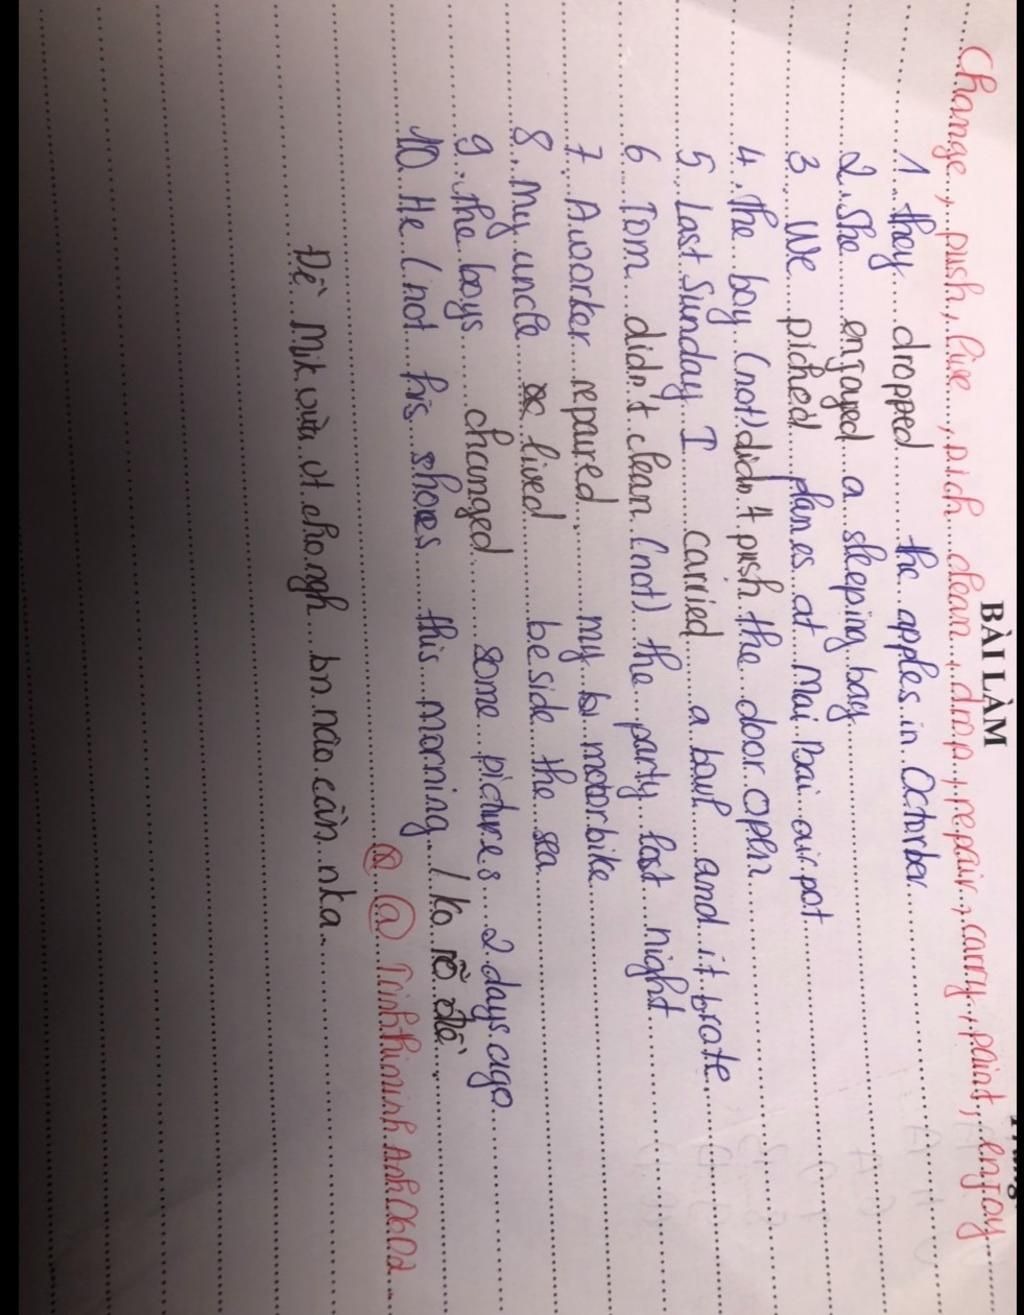 BÀI LÀM
Change, push, live, pich clean, drop, repair, carry, paint, enjoy
1. they dropped the apples in Octorber
2. She enjoyed a sleeping bay
3 We piched planes at Mai Bai air pot
4. the boy (not) didn't push the door open
5. Last Sunday I carried a bowl and it brote
6 Tom didn't clean (not) the party last night
7. A worker repaired my motorbike
8. My uncle lived beside the sea
9. the boys changed some pictures 2 days ago
10 He (not his shoes this morning / ko rõ đề
@ TrinhthiminhAnh0602
Đề Mik vừa vt cho ngh bn nào cần nka